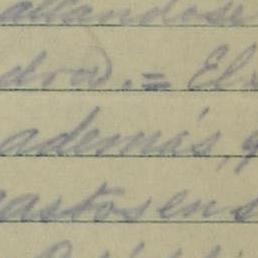 allandose
drow. = El
además, q
gastos en s